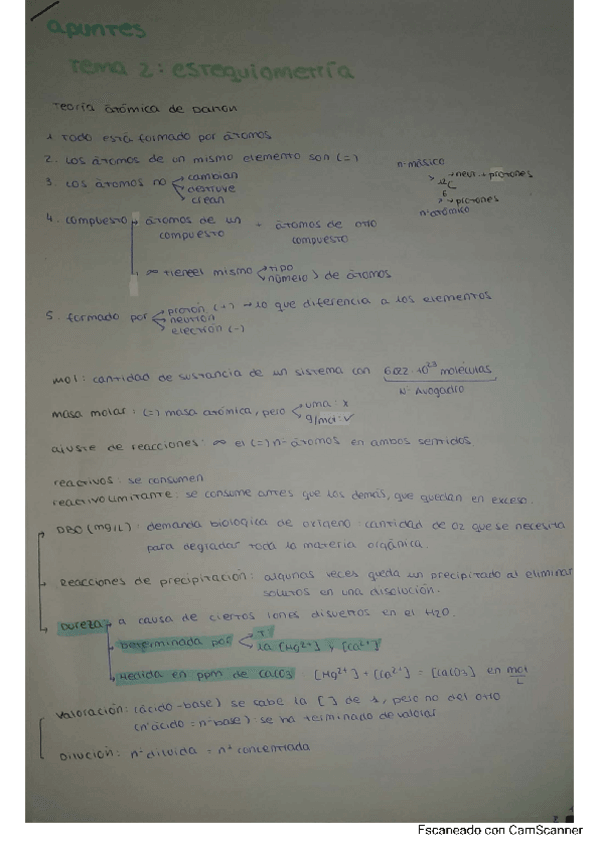 apuntes
Tema 2: estequiometría
Teoría atómica de Dalton
1. Todo está formado por átomos
2. Los átomos de un mismo elemento son (=)
3. Los átomos no cambian
destruye
crean
n- másico
12 C → neu + protones
6 → protones
n- atómico
4. compuesto → átomos de un compuesto + átomos de otro compuesto
∞ tiene el mismo tipo
número } de átomos
5. formado por protón (+) → lo que diferencia a los elementos
neutrón
electrón (-)
mol: cantidad de sustancia de un sistema con 6'022 · 10²³ moléculas
N· Avogadro
masa molar: (=) masa atómica, pero uma: x
g/mol: ✓
ajuste de reacciones: ∞ el (=) n- átomos en ambos sentidos
reactivos: se consumen
reactivo limitante: se consume antes que los demás, que quedan en exceso.
DBO (mg/L): demanda biologica de oxígeno: cantidad de O2 que se necesita
para degradar toda la materia orgánica.
Reacciones de precipitación: algunas veces queda un precipitado al eliminar
solutos en una disolución.
Dureza → a causa de ciertos iones disueltos en el H2O.
Determinada por la [Mg²⁺] y [Ca²⁺]
Medida en ppm de CaCO3 [Mg²⁺] + [Ca²⁺] = [CaCO3] en mol/L
Valoración: (ácido-base) se sabe la [ ] de 1, pero no del otro
(n- ácido = n- base): se ha terminado de valorar
Dilución: n- diluida = n- concentrada
2
Escaneado con CamScanner